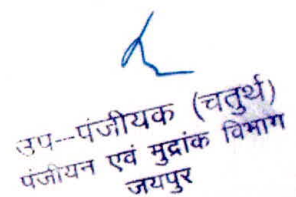 उप--पंजीयक (चतुर्थ)
पंजीयन एवं मुद्रांक विभाग
जयपुर